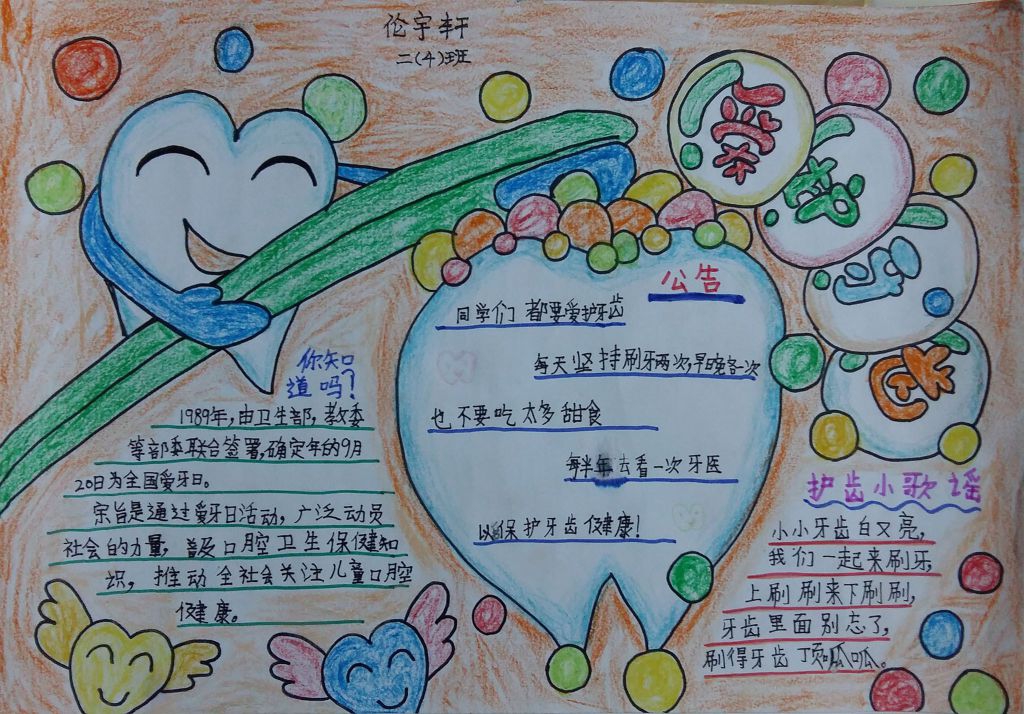 伦宇轩
二(4)班
公告
同学们都要爱护牙齿
每天坚持刷牙两次,早晚各一次
也不要吃太多甜食
每半年去看一次牙医
以保护牙齿健康!
你知
道吗?
1989年,由卫生部,教委
等部委联合签署,确定年的9月
20日为全国爱牙日。
宗旨是通过爱牙日活动,广泛动员
社会的力量,普及口腔卫生保健知
识,推动全社会关注儿童口腔
健康。
护齿小歌谣
小小牙齿白又亮,
我们一起来刷牙,
上刷刷来下刷刷,
牙齿里面别忘了,
刷得牙齿顶呱呱。